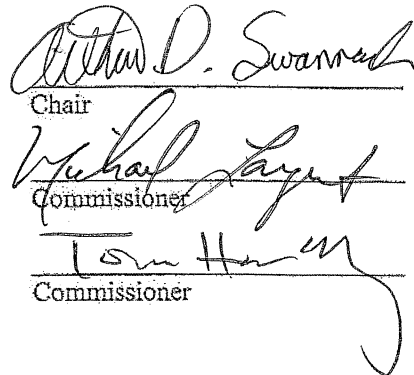 Arthur D. Swannack
Chair
Michael Largent
Commissioner
Tom
Commissioner